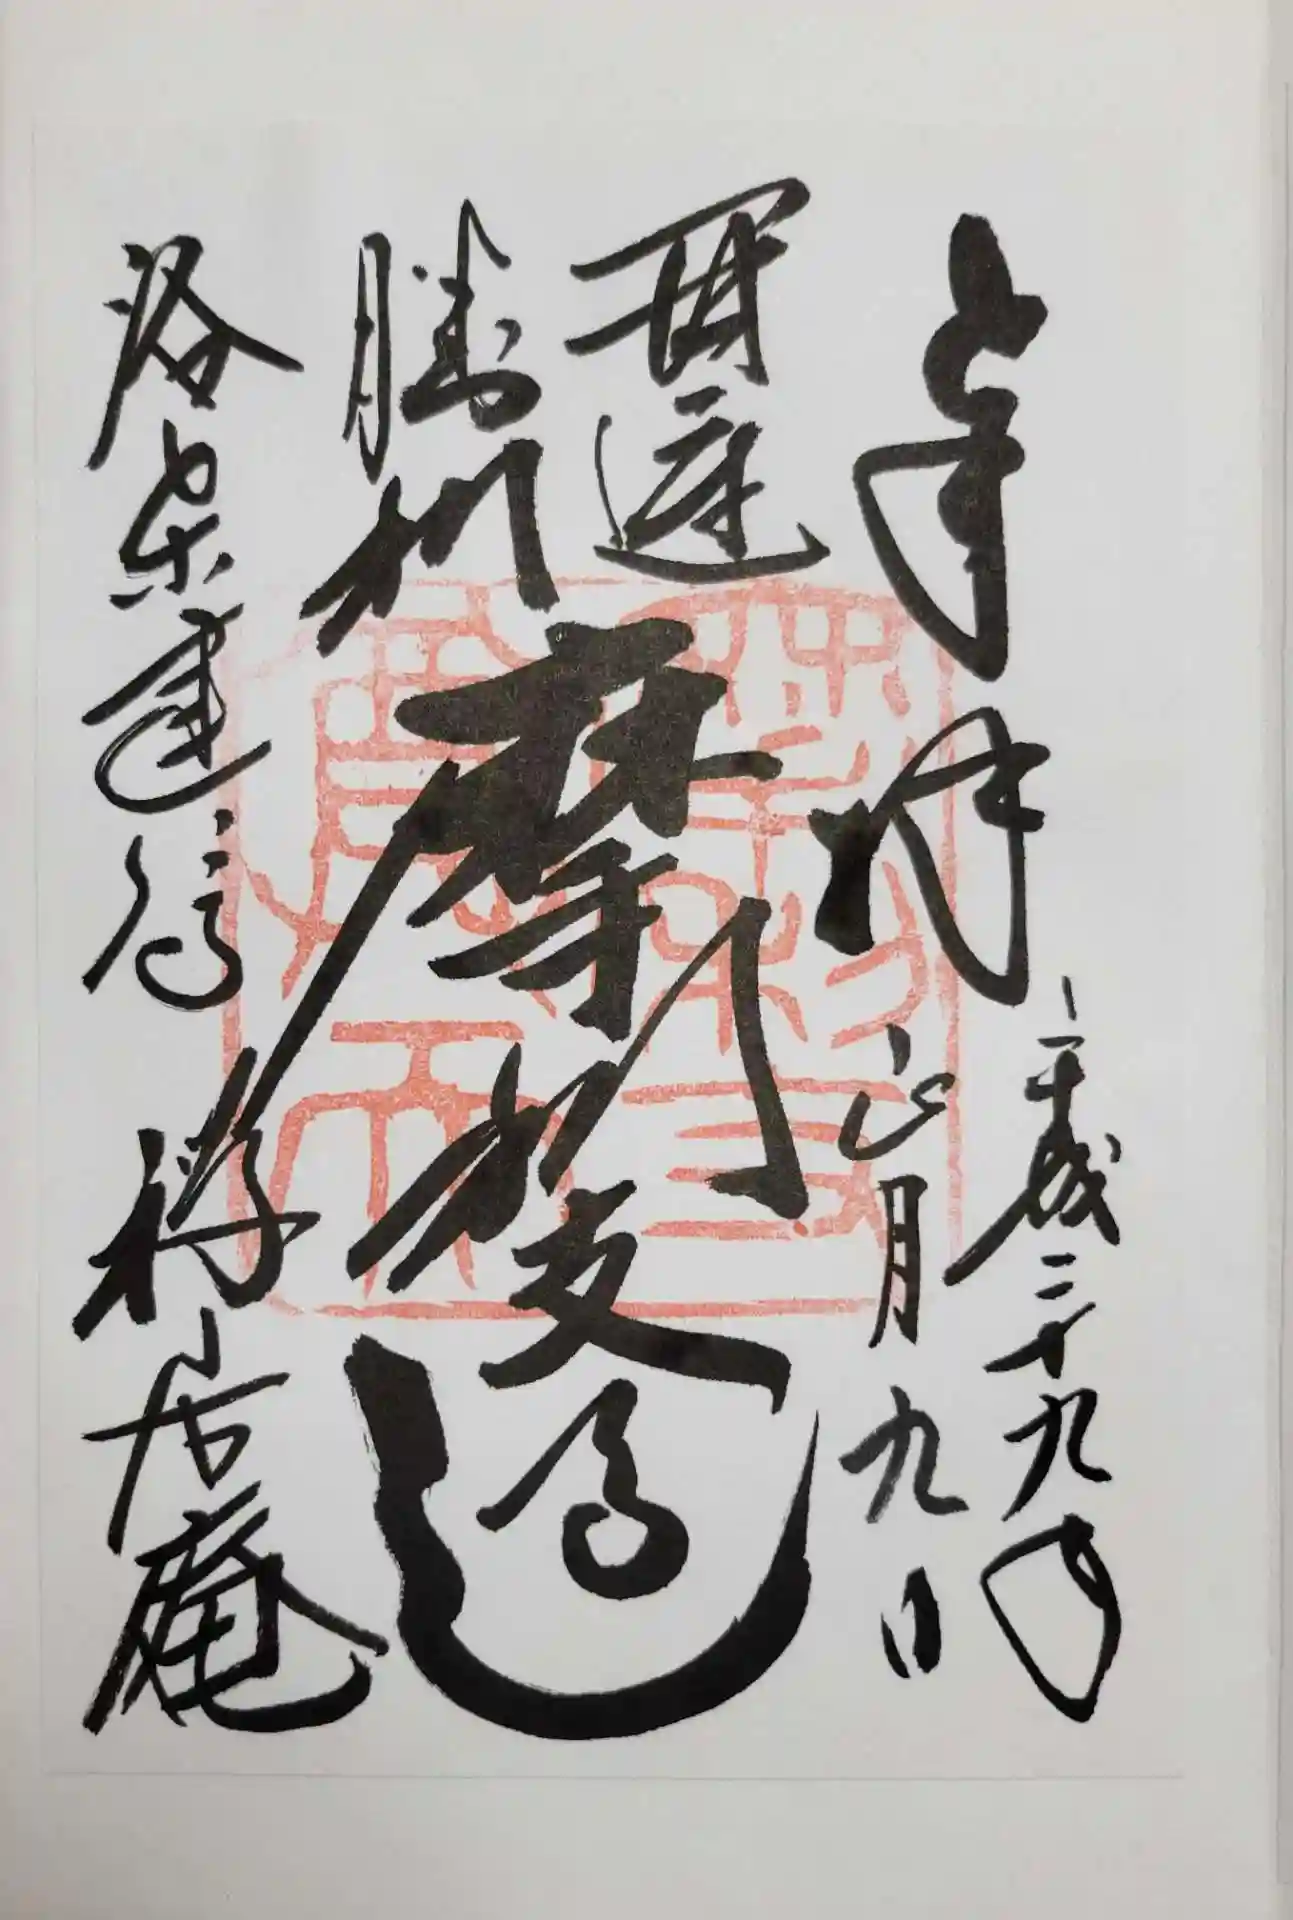 奉拝
平成二十九年
正月九日
開運
勝利
摩利支
洛東建仁寺 禅居庵